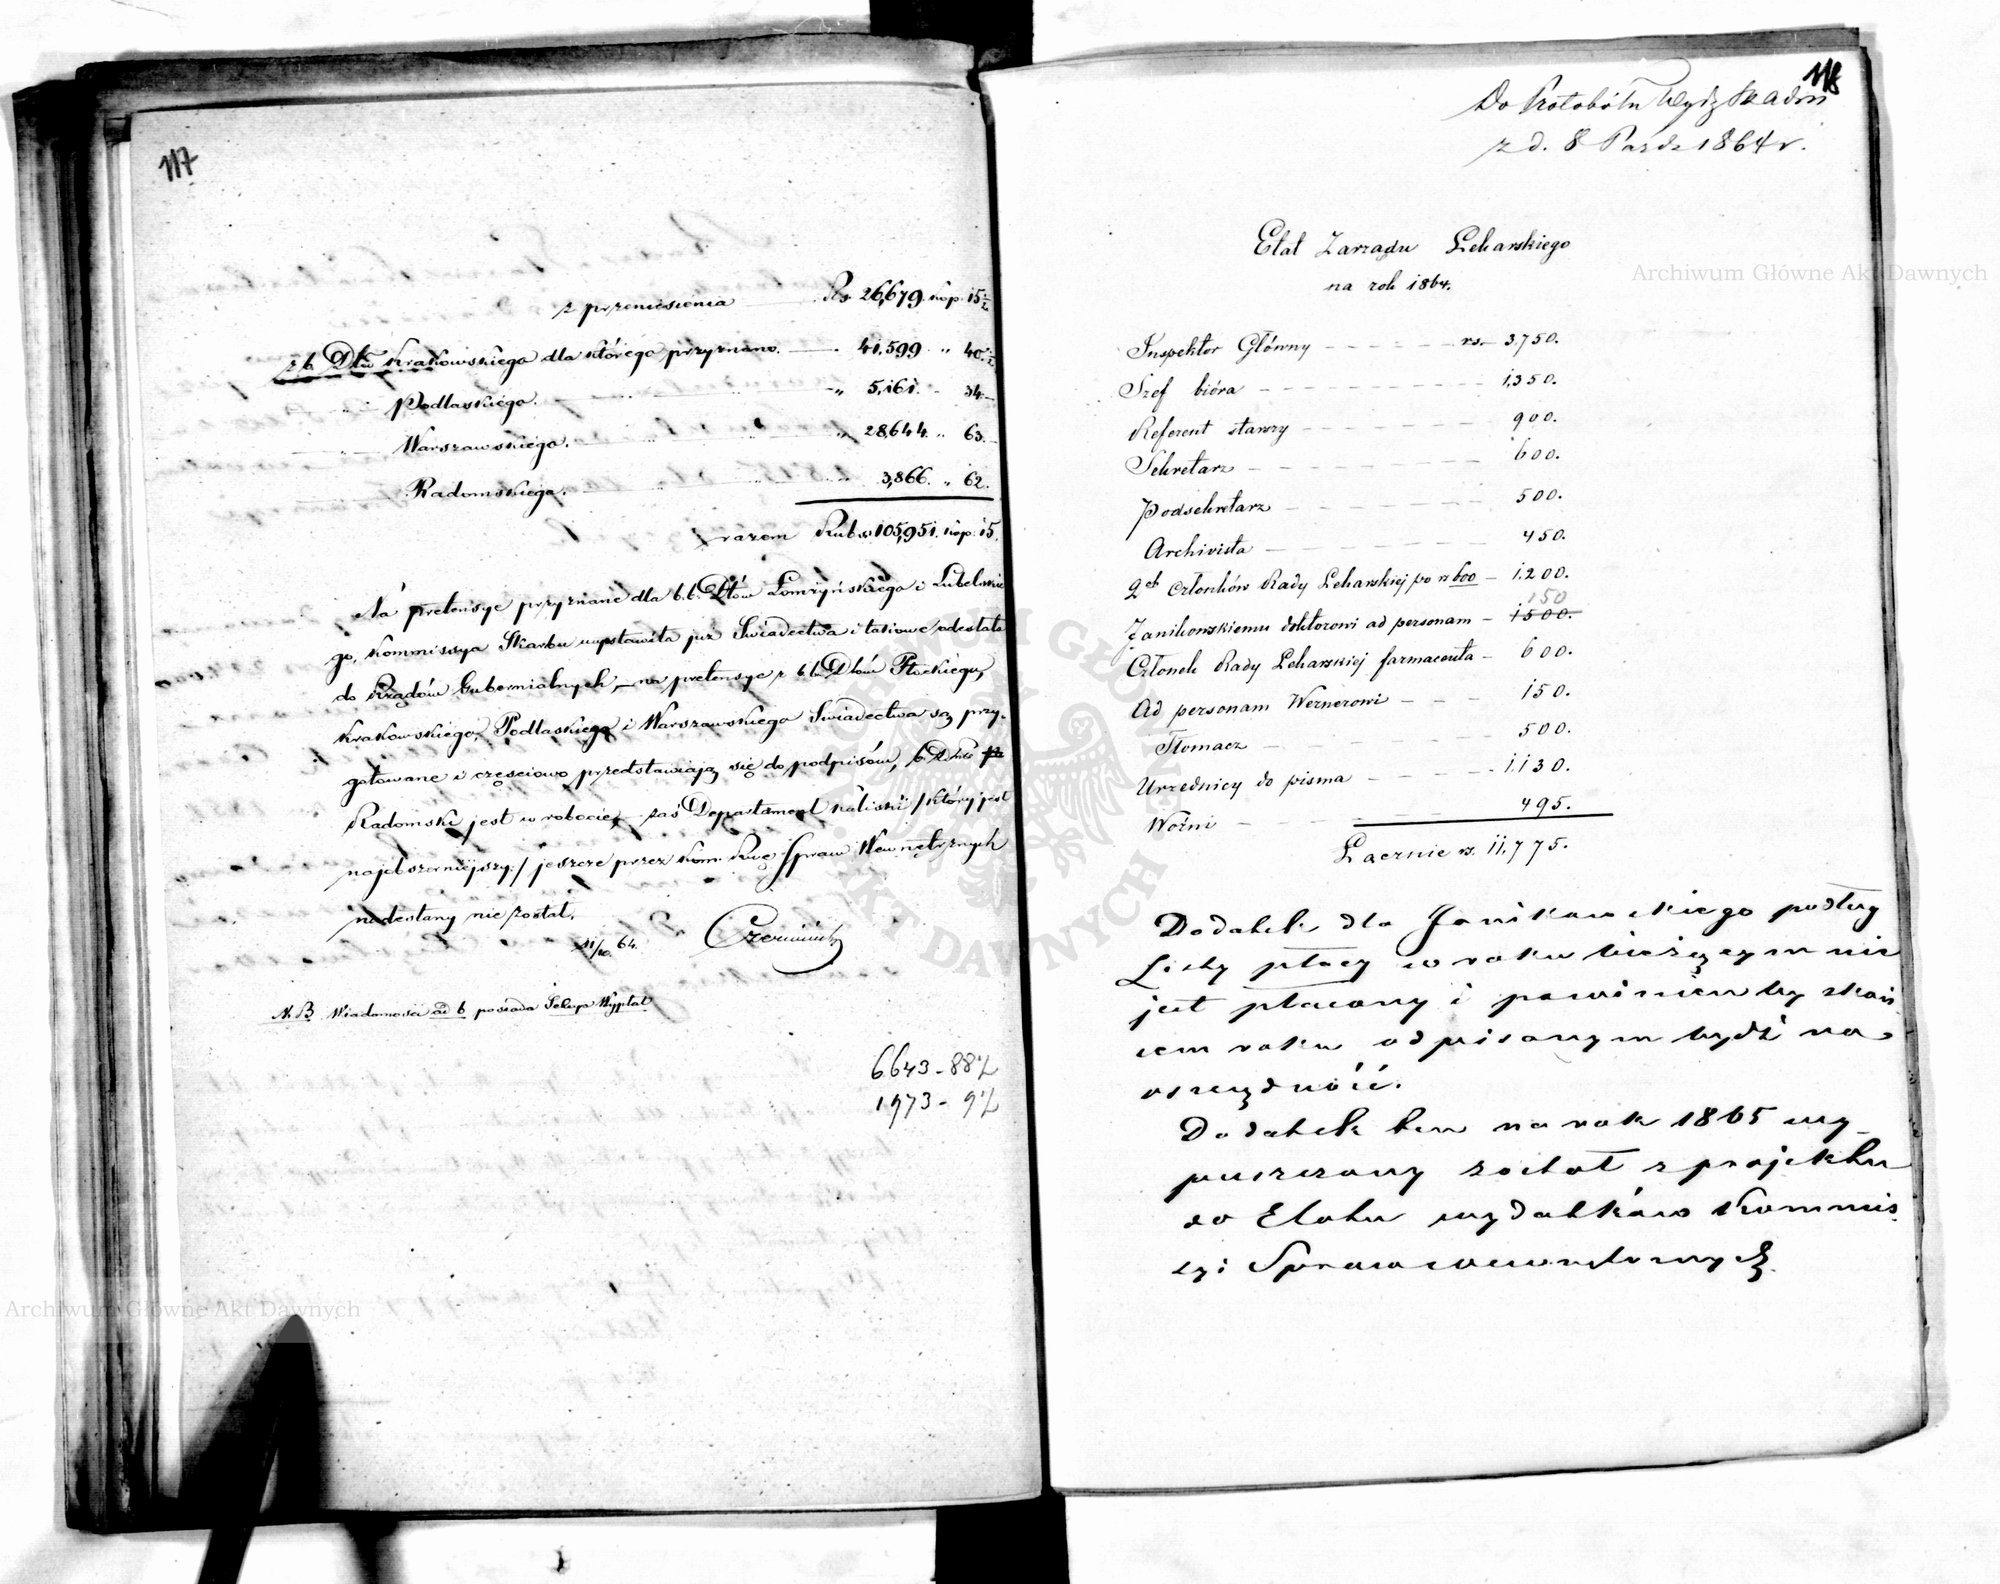 117
z przeniesienia Rs. 26,679. kop. 15½
z b. Dtu Krakowskiego dla którego przyznano. 41,599 „ 40½
Podlaskiego. „ 5,161. „ 34.
Warszawskiego. „ 28,644. „ 63.
Radomskiego. 3,866. „ 62.
razem Rubsr. 105,951. kop. 15.
Na pretensye przyznane dla b. b. Dtów Łomżyńskiego i Lubelskie
go, Kommissya Skarbu wystawiła już Świadectwa i takowe odesłała
do Rządów Gubernialnych, — na pretensye z b. b. Dtów Płockiego,
Krakowskiego, Podlaskiego i Warszawskiego Świadectwa są przy-
gotowane i częściowo przedstawiają się do podpisów, b. Dtu
Radomski jest w robocie, — zaś Departament Kaliski /który jest
najobszerniejszy/ jeszcze przez Kom. Rwą Spraw Wewnętrznych
nadesłany nie został.
11/10 64.
N. B. Wiadomości ad b posiada Sekcya Wypłat
6643 - 88½
1973 - 9½
118
Do Protokółu Wydz
z d. 8 Paźdz 1864 r.
Etat Zarządu Lekarskiego
na rok 1864.
Inspektor Główny rs. 3,750.
Szef bióra 1,350.
Referent starszy 900.
Sekretarz 600.
Podsekretarz 500.
Archivista 450.
2ch Członków Rady Lekarskiej po rs 600 1.200.
150
Janikowskiemu doktorowi ad personam 1500.
Członek Rady Lekarskiej farmaceuta 600.
Ad personam Wernerowi 150.
Tłomacz 500.
Urzędnicy do pisma 1.130.
Woźni 495.
Łącznie rs. 11,775.
Dodatek dla Janikowskiego podług
Listy płacy w roku bieżącym nie
jest płacony i powinien by z koń
cem roku odpisanym bydź na
oszczędność.
Dodatek ten na rok 1865 wy
puszczony został z projektu
do Etatu wydatków Kommis
syi Spraw Wewnętrznych
Archiwum Główne Akt Dawnych
Archiwum Główne Akt Dawnych
ARCHIWUM GŁÓWNE AKT DAWNYCH